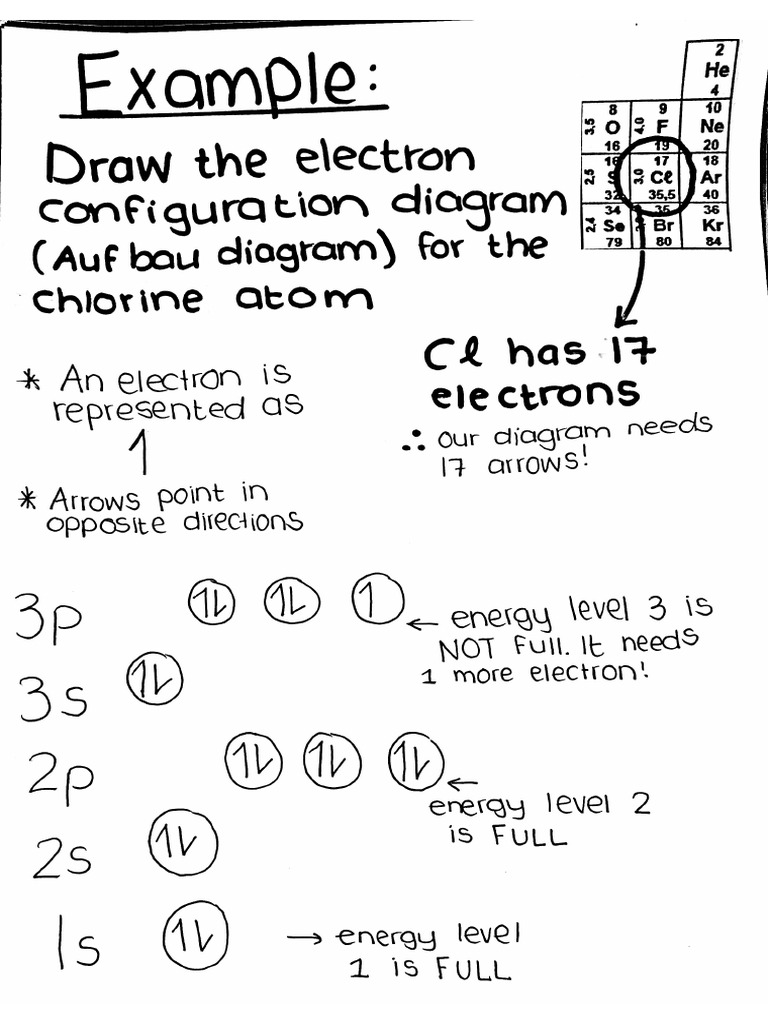 Example:
Draw the electron
configuration diagram
(Aufbau diagram) for the
chlorine atom
2
He
4
8 9 10
3,5 O 4,0 F Ne
16 19 20
16 17 18
2,5 S 3,0 Cl Ar
32 35,5 40
34 35 36
2,4 Se Br Kr
79 80 84
Cl has 17
electrons
∴ our diagram needs
17 arrows!
* An electron is
represented as
1
* Arrows point in
opposite directions
3p 1L 1L 1
← energy level 3 is
NOT full. It needs
1 more electron!
3s 1L
2p 1L 1L 1L
← energy level 2
is FULL
2s 1L
1s 1L → energy level
1 is FULL